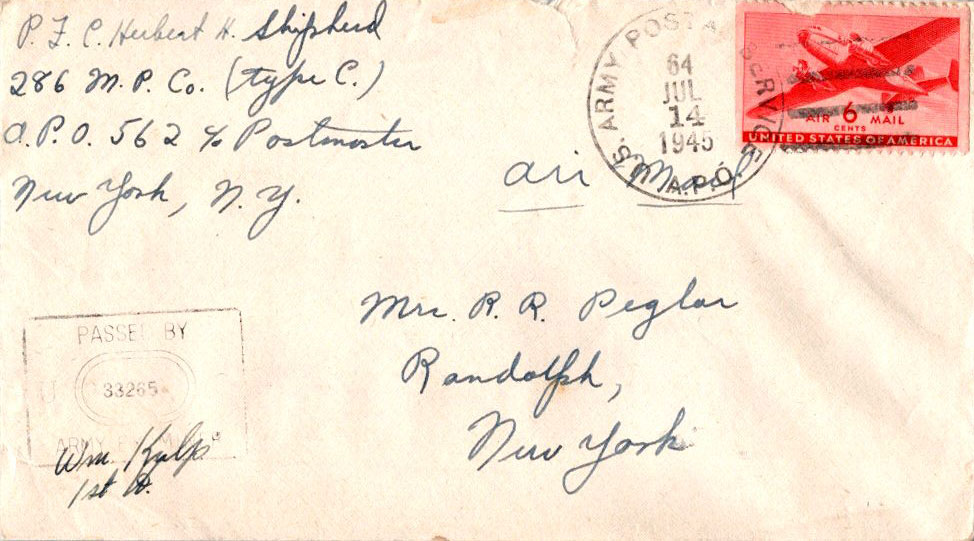 P.F.C. Herbert H. Shipherd
286 M.P. Co. (type C.)
A.P.O. 562 % Postmaster
New York, N.Y.
U.S. ARMY POSTAL SERVICE
64
JUL
14
1945
A.P.O.
AIR 6 MAIL
CENTS
UNITED STATES OF AMERICA
Air Mail
Mrs. R. R. Peglar
Randolph,
New York
PASSED BY
33265
ARMY
Wm. Kulp
1st Lt.